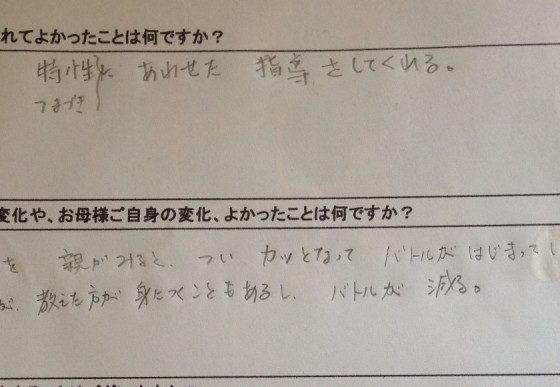 れてよかったことは何ですか？
特性に あわせた 指導をしてくれる。
つまづき
変化や、お母様ご自身の変化、よかったことは何ですか？
を 親がみると、つい カッとなって バトルが はじまってし
が、教えた方が 身につくこともあるし、バトルが 減る。